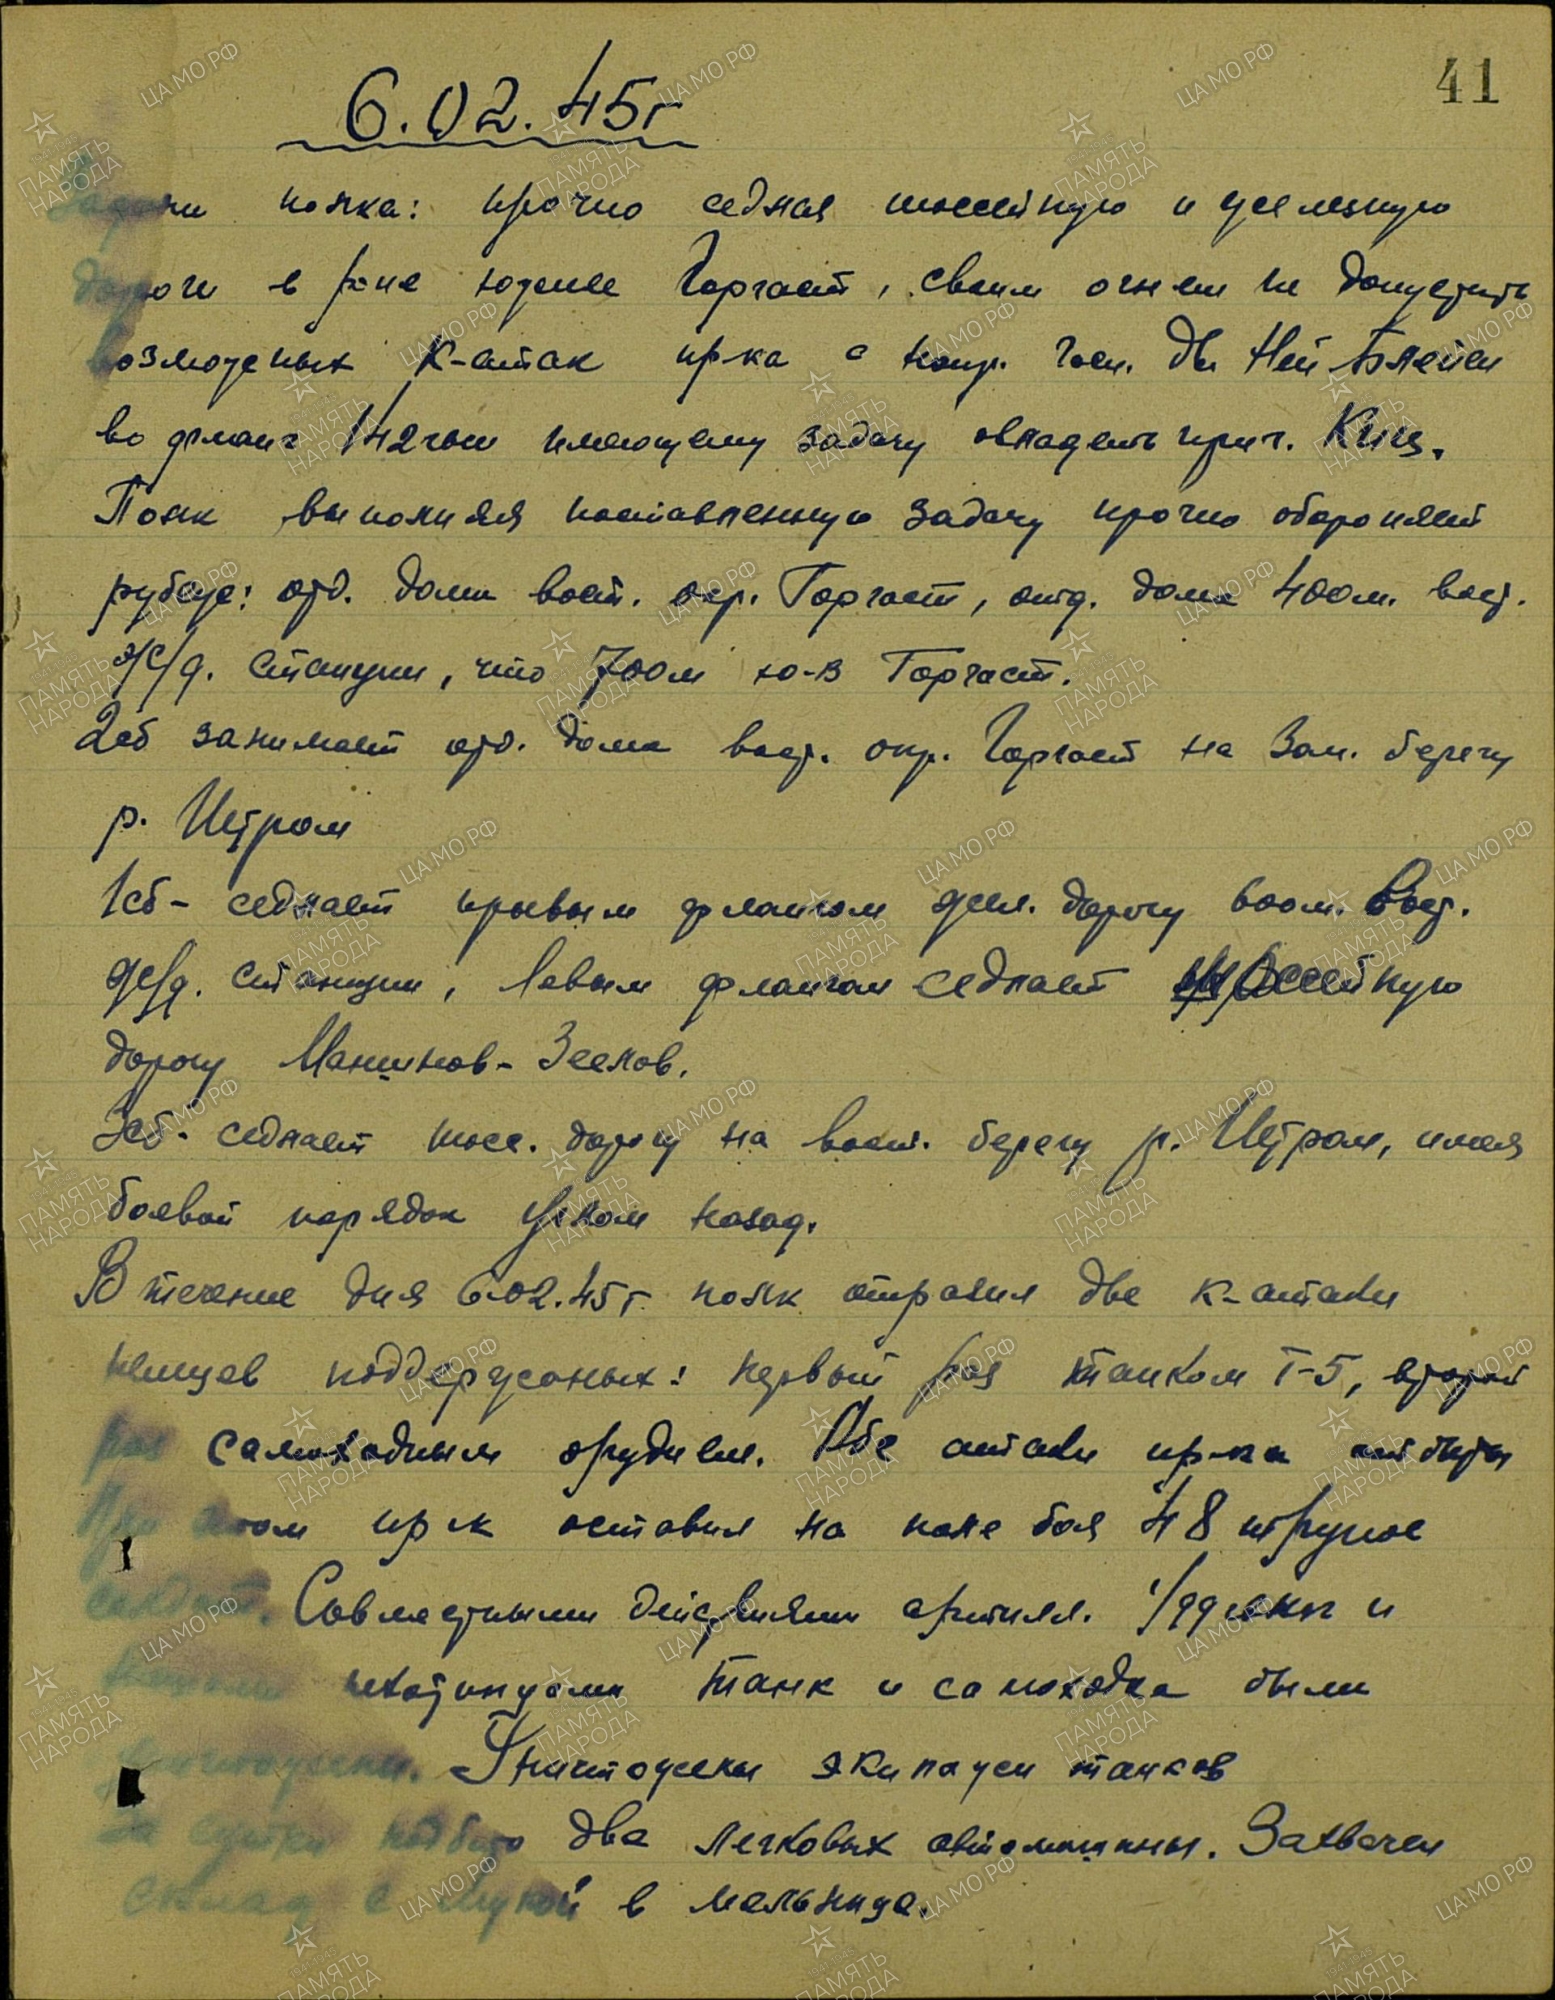 41
6.02.45г
Задачи полка: прочно седлая шоссейную и железную
дороги в р-не южнее Горгаст, своим огнем не допустить
возможных к-атак пр-ка с напр. Гос. дв. Ней Блейен
во фланг 142гсп имеющему задачу овладетьприг. Киц.
Полк выполняя поставленную задачу прочно обороняет
рубеж: отд. дома вост. окр. Горгаст, отд. дома 400м. вост.
ж/д. станции, что 700м ю-в Горгаст.
2сб занимает отд. дома вост. окр. Горгаст на зап. берегу
р. Штром
1сб - седлает правым флангом жел. дорогу 800м. вост.
ж/д. станции, левым флангом седлает шоссейную
дорогу Маншнов - Зеелов.
3сб - седлает шосс. дорогу на вост. берегу р. Штром, имея
боевой порядок углом назад.
В течение дня 6.02.45г полк отразил две к-атаки
немцев поддержаных: первый раз танком Т-5, второй
раз самоходным орудием. Обе атаки пр-ка отбиты
При этом пр-к оставил на поле боя 48 трупов
солдат. Совместными действиями артилл. и
нашими пехотинцами танк и самоходка были
уничтожены. Уничтожены экипажи танков
За сутки подбито два легковых автомашины. Захвачен
склад с мукой в мельнице.